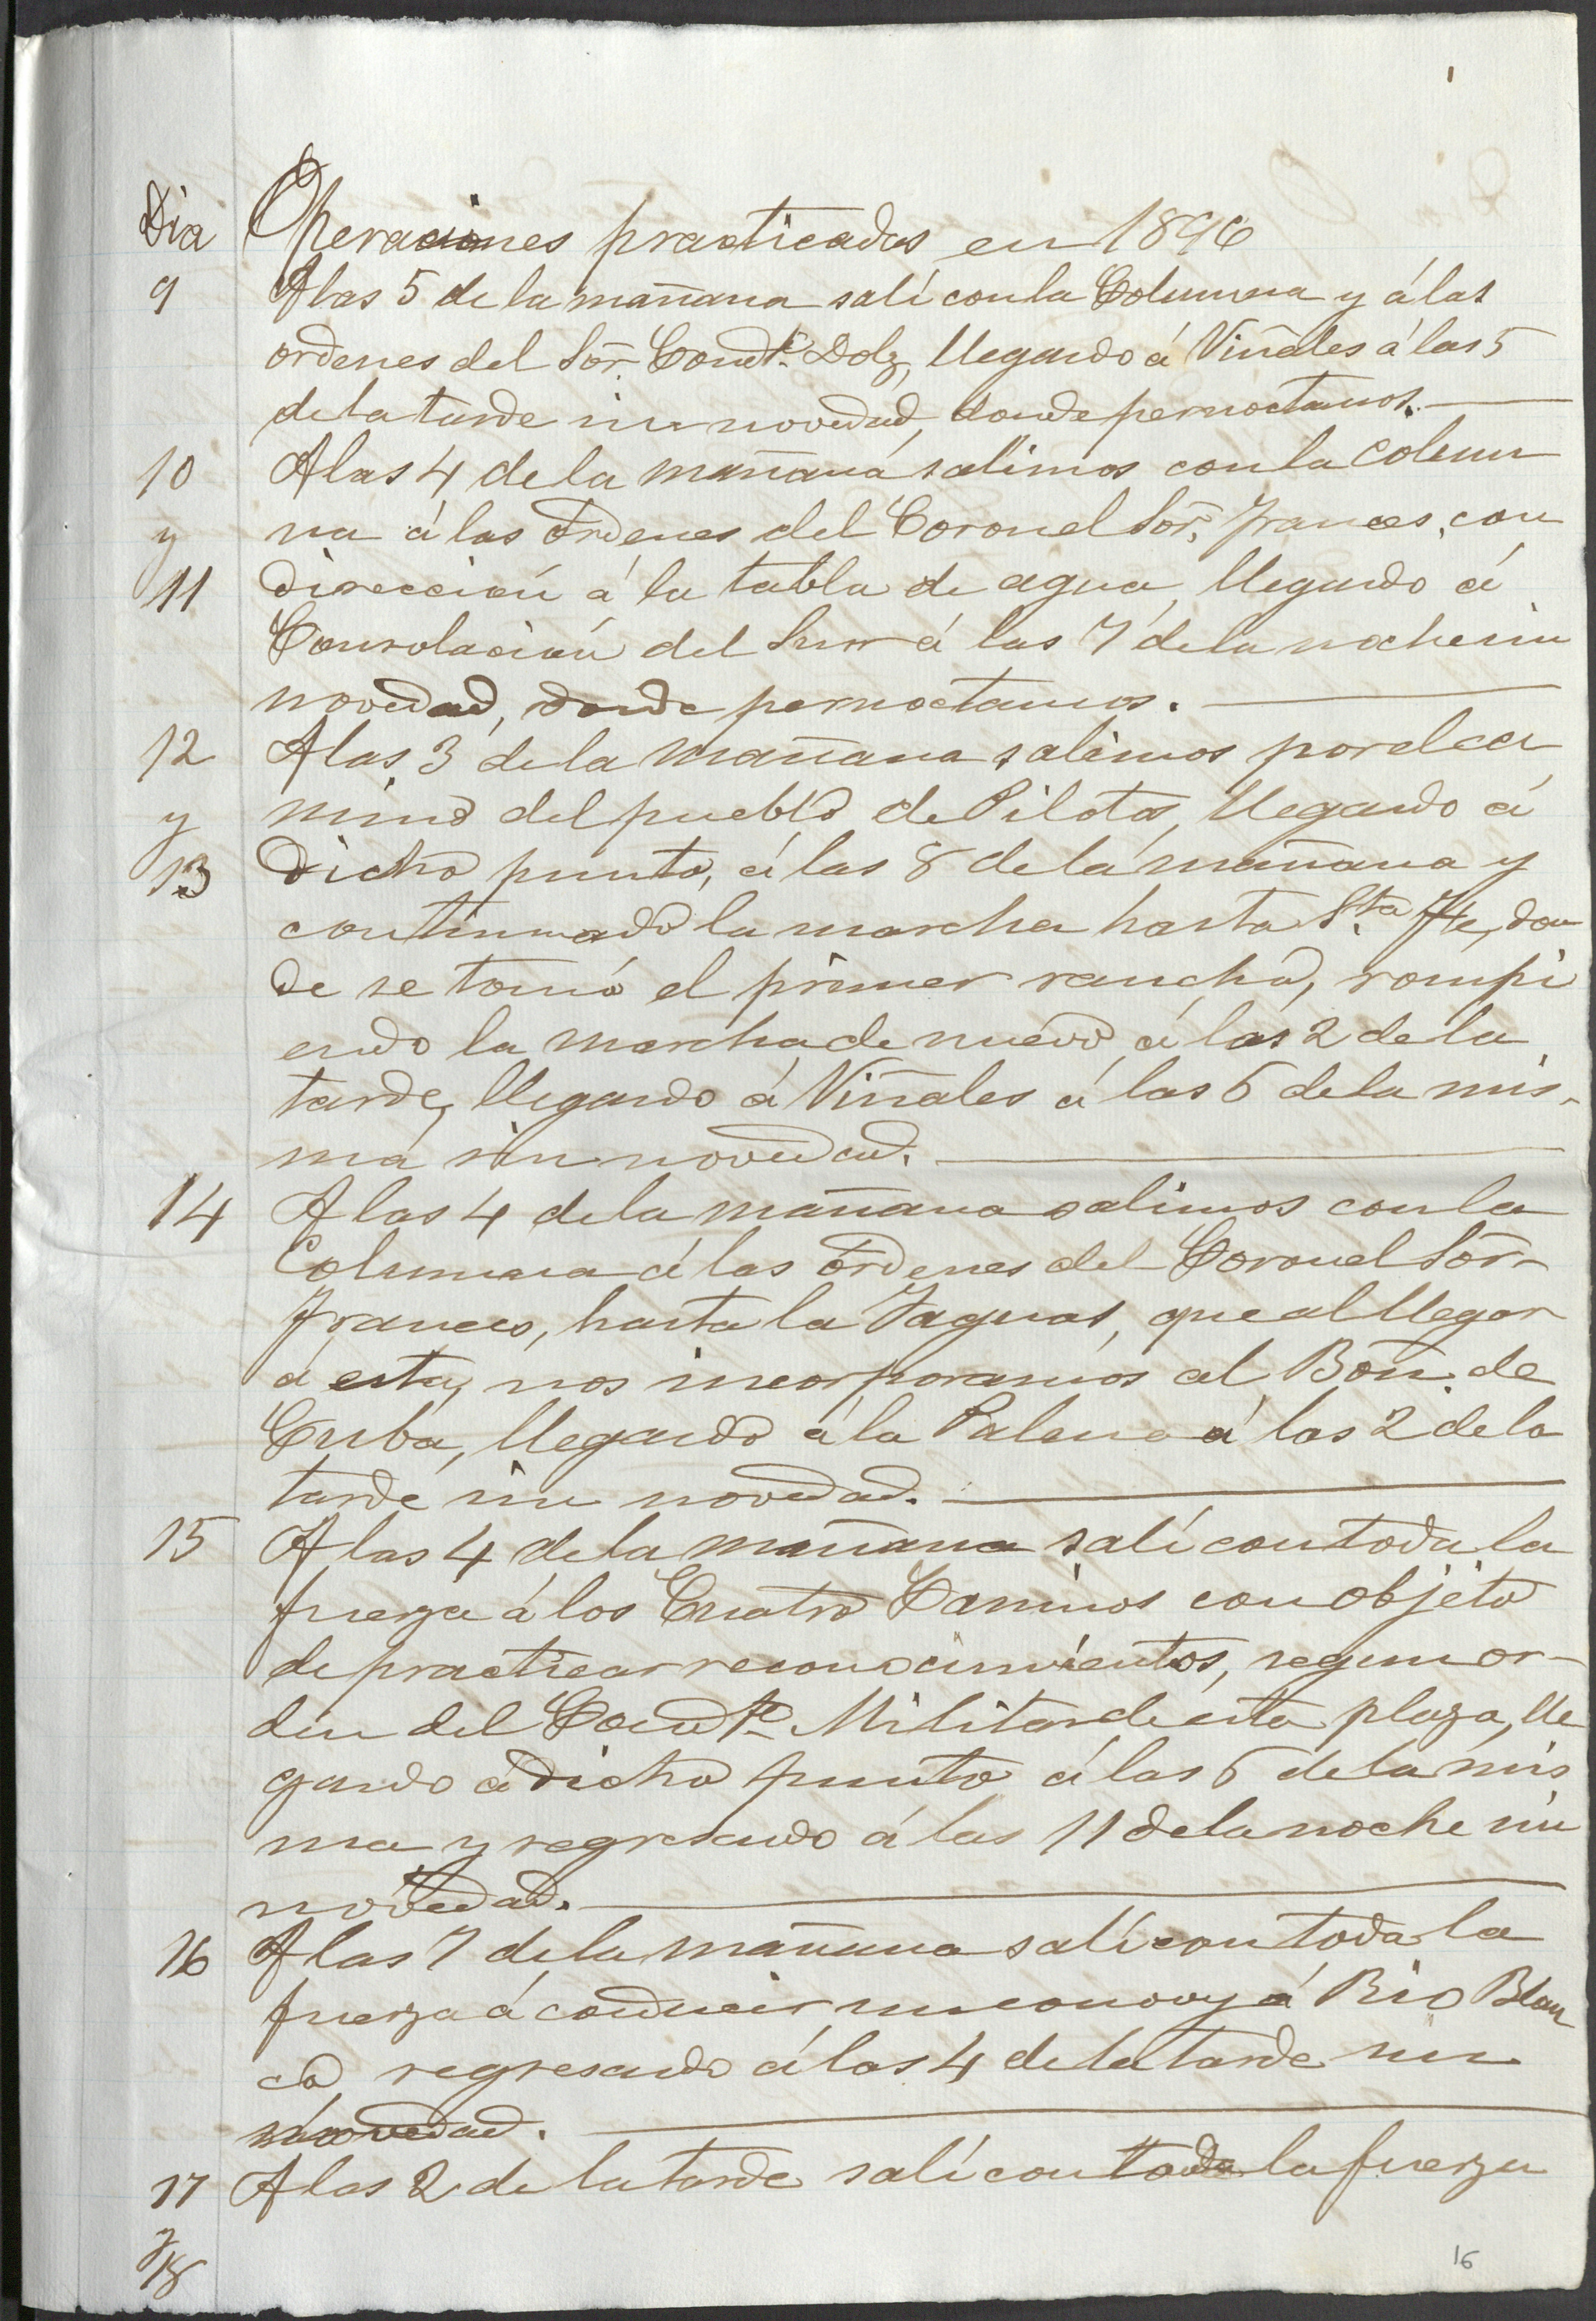 1
Dia Operaciones practicadas en 1896
9 A las 5 de la mañana salí con la Columna y á las
ordenes del Sor. Comdte. Dolz, llegando á Viñales á las 5
de la tarde sin novedad, donde pernoctamos.
10 A las 4 de la mañana salimos con la Colum
y na á las órdenes del Coronel Sor. Frances, con
11 dirección á la tabla de agua, llegando á
Consolación del Sur á las 7 de la noche sin
novedad, donde pernoctamos.
12 A las 3 de la mañana salimos por el ca
y mino del pueblo de Pilotos, llegando á
13 dicho punto, á las 8 de la mañana y
continuado la marcha hasta Sta. Fe, don
de se tomó el primer rancho, rompi
endo la marcha de nuevo á las 2 de la
tarde, llegando á Viñales á las 6 de la mis-
ma sin novedad.
14 A las 4 de la mañana salimos con la
Columna á las órdenes del Coronel Sor.
Frances, hasta la Yaguas, que al llegar
á esta, nos incorporamos al Bón. de
Cuba, llegando á la Palma á las 2 de la
tarde sin novedad.
15 A las 4 de la mañana salí con toda la
fuerza á los Cuatro Caminos con objeto
de practicar reconocimientos, segun or-
den del Comdte. Militar de esta plaza, lle
gando á dicho punto á las 6 de la mis
ma y regresando á las 11 de la noche sin
novedad.
16 A las 7 de la mañana salí con toda la
fuerza á conducir un convoy á Rio Blan
co regresando á las 4 de la tarde sin
novedad.
17 A las 2 de la tarde salí con toda la fuerza
y
18
16